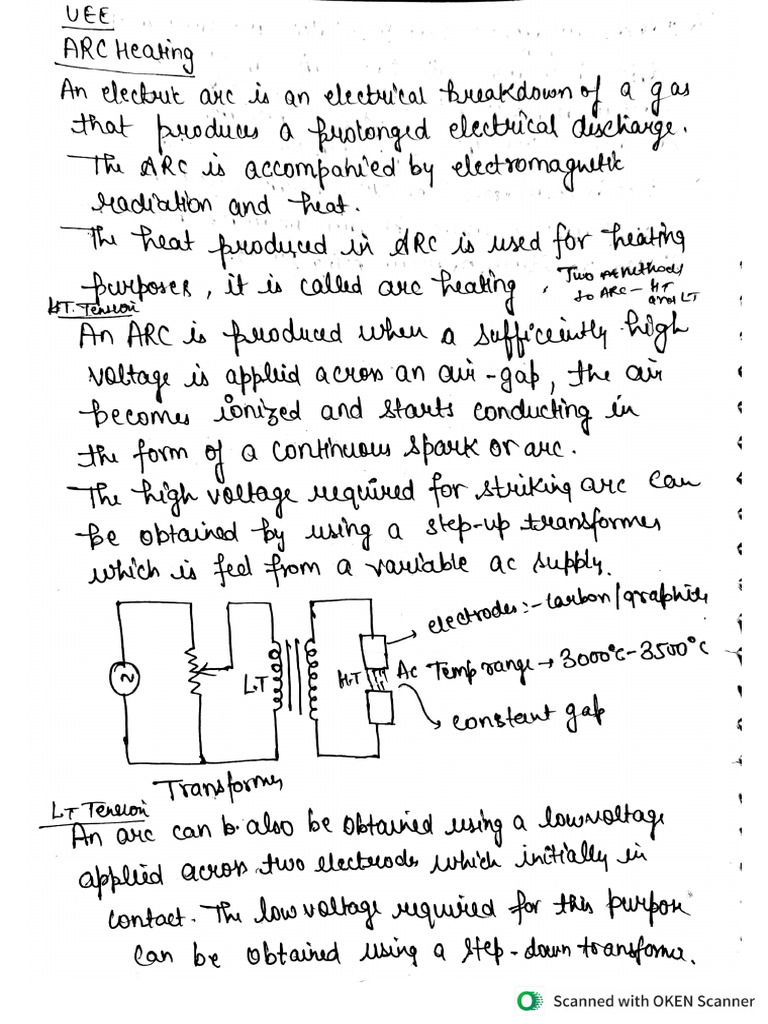 UEE
ARC Heating
An electric arc is an electrical breakdown of a gas
that produces a prolonged electrical discharge.
The ARC is accompanied by electromagnetic
radiation and heat.
The heat produced in ARC is used for heating
purposes, it is called arc heating. Two methods
to ARC - HT
and LT
HT. Tension
An ARC is produced when a sufficiently high
voltage is applied across an air-gap, the air
becomes ionized and starts conducting in
the form of a continuous spark or arc.
The high voltage required for striking arc can
be obtained by using a step-up transformer
which is feel from a variable ac supply.
electrodes:- carbon/graphite
L.T H.T Ac Temp range → 3000°C - 3500°C
constant gap
Transformer
LT Tension
An arc can b. also be obtained using a low voltage
applied across two electrodes which initially in
contact. The low voltage required for this purpose
can be obtained using a step-down transforme.
Scanned with OKEN Scanner